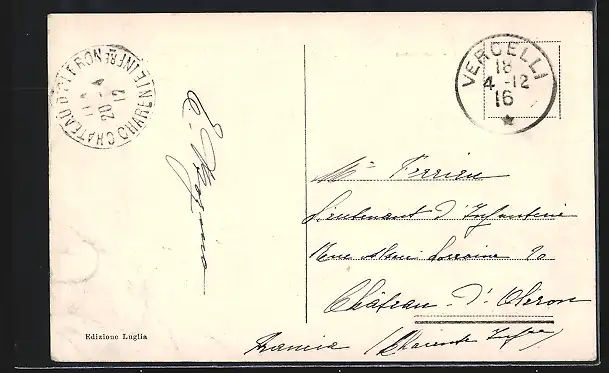 VERCELLI
18
4 - 12
16
CHATEAU D'OLERON
CHARENTE INFRE
20 - 4
12
E.
Mr Ferrieu
Lieutenant d'Infanterie
Rue Alsace Lorraine 90
Château-d'Oléron
(Charente Infre)
Edizione Luglia